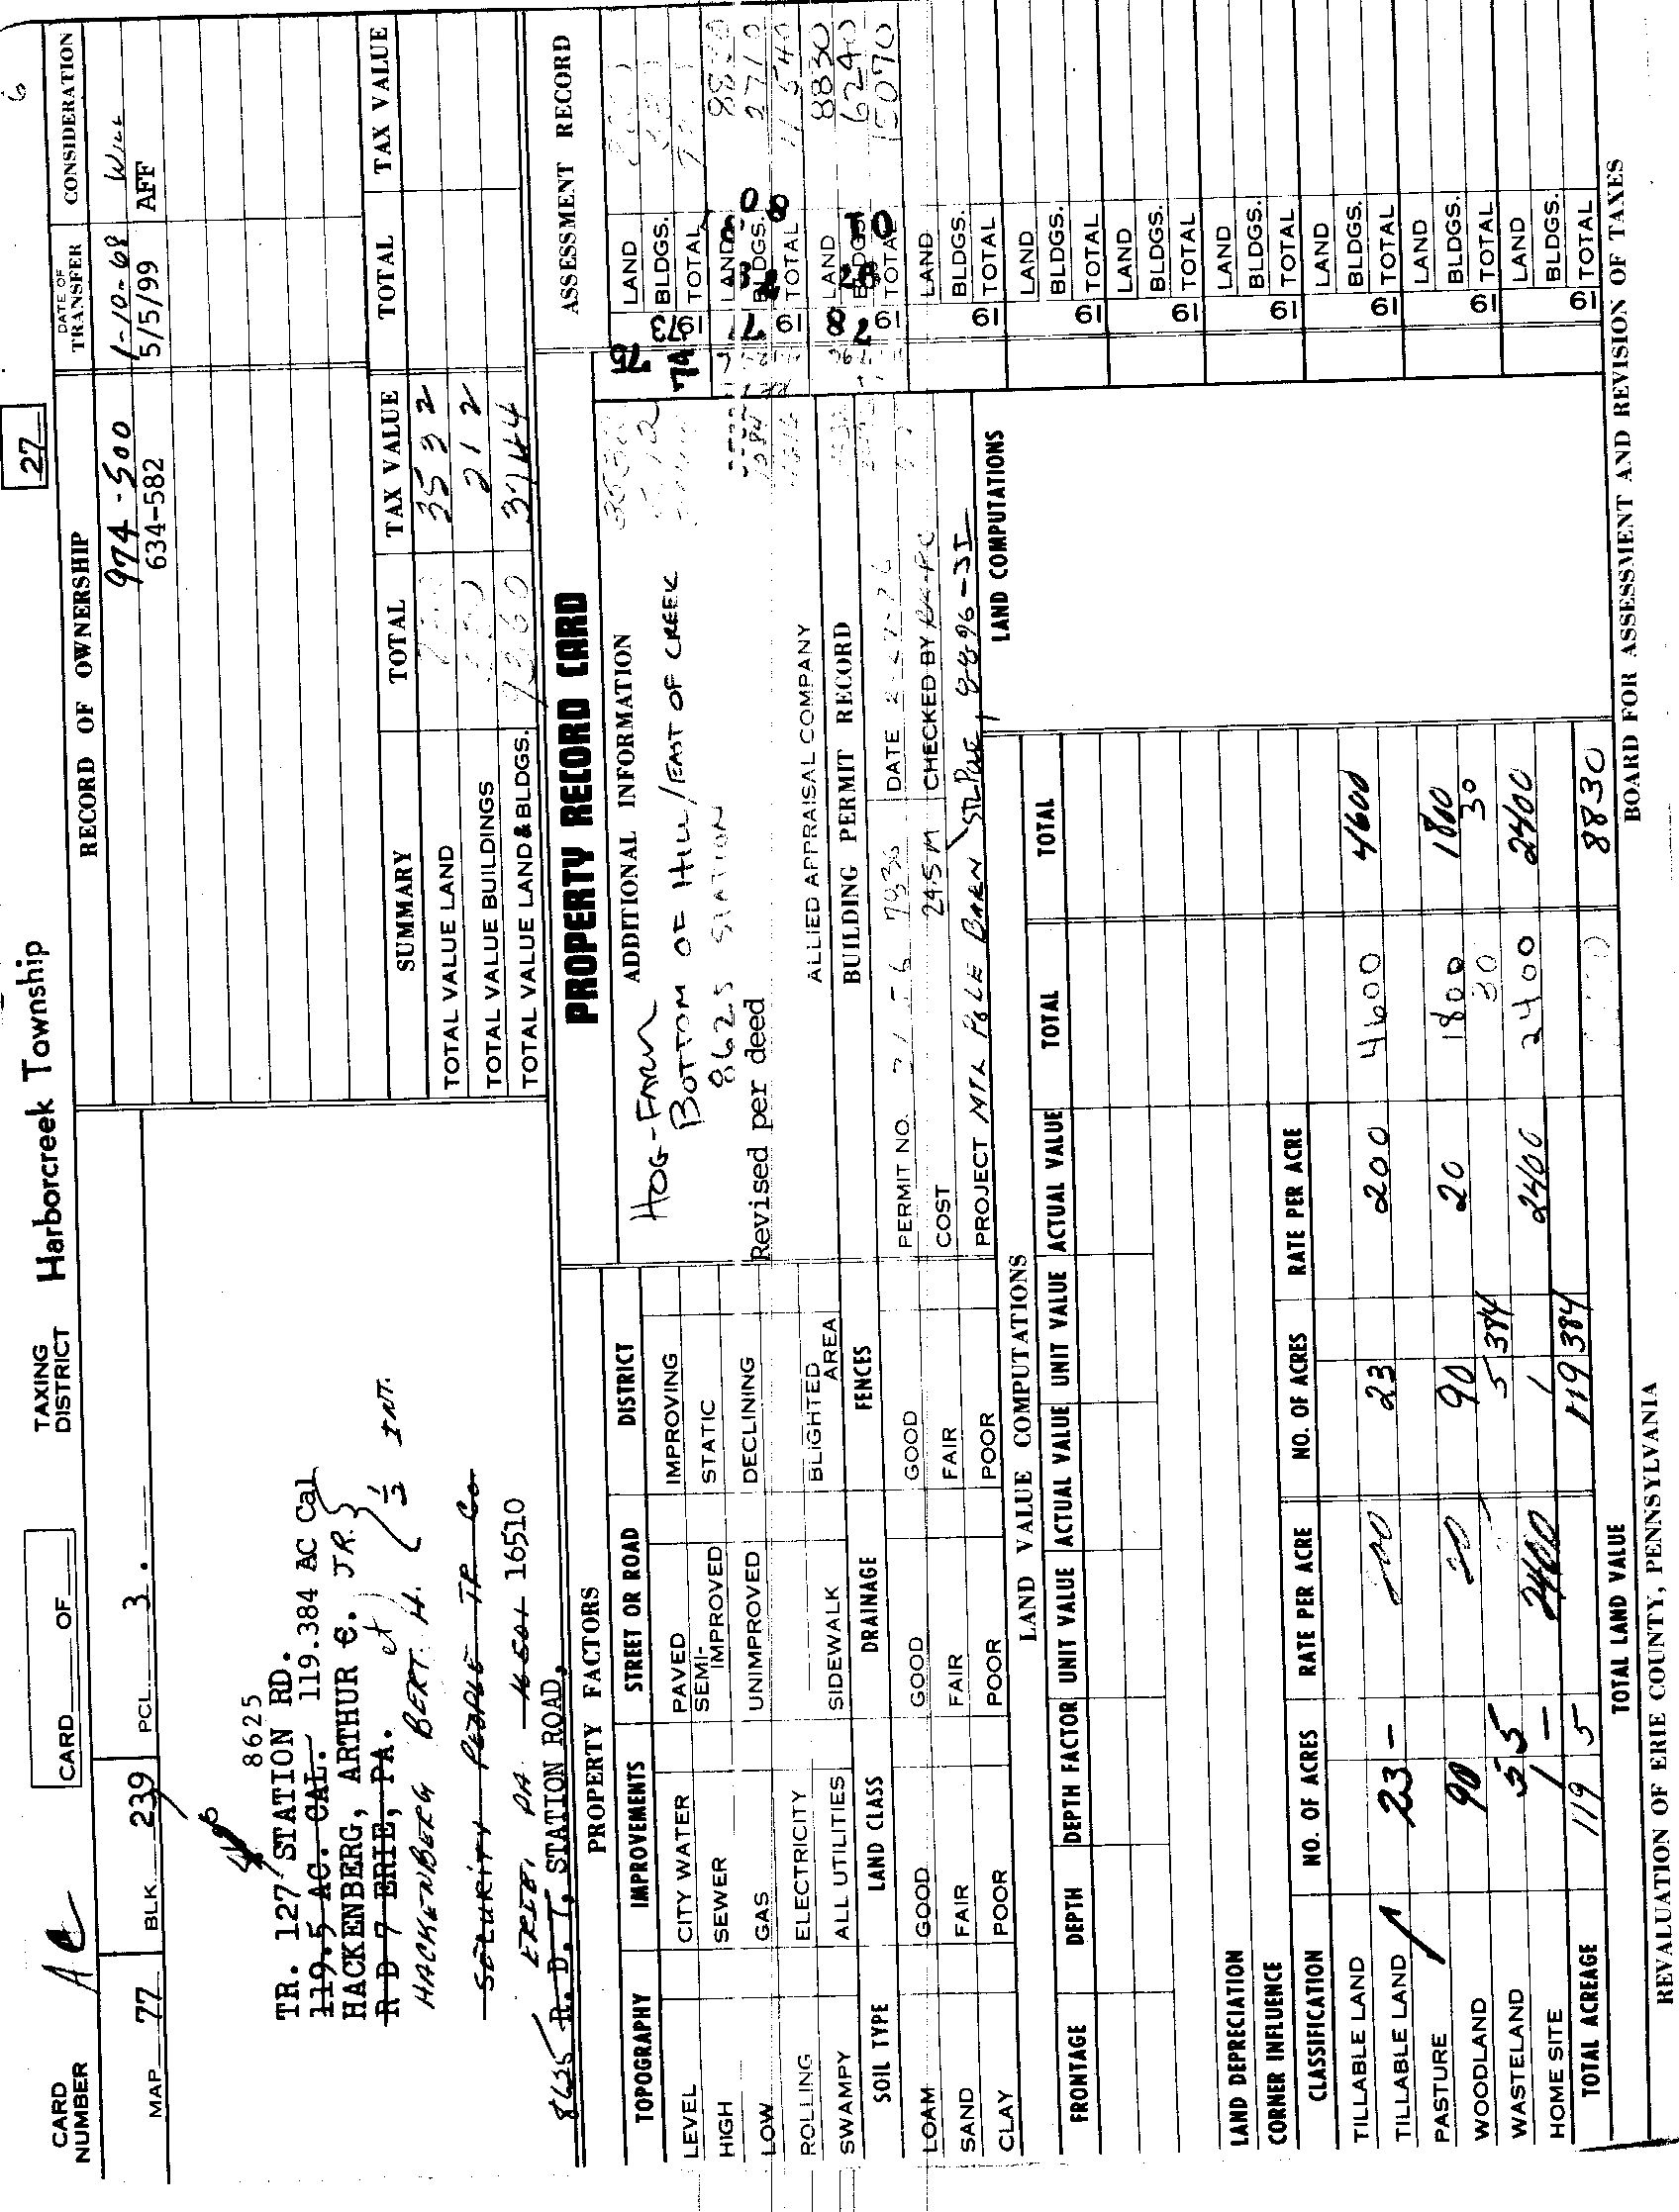 27
6
CARD NUMBER
CARD OF
TAXING DISTRICT Harborcreek Township
MAP 77 BLK. 239 PCL. 3.
8625
TR. 127 STATION RD.
119.5 AC. CAL. 119.384 AC Cal
HACKENBERG, ARTHUR C. JR.
R D 7 ERIE, PA.
HACKENBERG BERT H. ( 1/2 INT.
SECURITY PEOPLE TR Co
ERIE, PA 16501 16510
8625 R. D. 7, STATION ROAD,
RECORD OF OWNERSHIP DATE OF TRANSFER CONSIDERATION
974-500 1-10-68 Will
634-582 5/5/99 AFF
SUMMARY TOTAL TAX VALUE TOTAL TAX VALUE
TOTAL VALUE LAND 3532
TOTAL VALUE BUILDINGS 212
TOTAL VALUE LAND & BLDGS. 9360 3744
PROPERTY RECORD CARD
PROPERTY FACTORS
TOPOGRAPHY IMPROVEMENTS STREET OR ROAD DISTRICT
LEVEL CITY WATER PAVED IMPROVING
HIGH SEWER SEMI-IMPROVED STATIC
LOW GAS UNIMPROVED DECLINING
ROLLING ELECTRICITY BLIGHTED AREA
SWAMPY ALL UTILITIES SIDEWALK
SOIL TYPE LAND CLASS DRAINAGE FENCES
LOAM GOOD GOOD GOOD
SAND FAIR FAIR FAIR
CLAY POOR POOR POOR
ADDITIONAL INFORMATION
HOG-FARM
BOTTOM OF HILL/EAST OF CREEK
8625 STATION
Revised per deed
ALLIED APPRAISAL COMPANY
BUILDING PERMIT RECORD
PERMIT NO. DATE
COST 245M CHECKED BY
PROJECT MTL POLE BARN
ASSESSMENT RECORD
1973 LAND
BLDGS.
TOTAL
74
75
19 LAND 8830
BLDGS. 2710
TOTAL 11540
19 LAND 8830
BLDGS. 6240
TOTAL 15070
19 LAND
BLDGS.
TOTAL
19 LAND
BLDGS.
TOTAL
19 LAND
BLDGS.
TOTAL
19 LAND
BLDGS.
TOTAL
19 LAND
BLDGS.
TOTAL
19 LAND
BLDGS.
TOTAL
19 LAND
BLDGS.
TOTAL
LAND VALUE COMPUTATIONS
LAND COMPUTATIONS
FRONTAGE DEPTH DEPTH FACTOR UNIT VALUE ACTUAL VALUE UNIT VALUE ACTUAL VALUE TOTAL TOTAL
LAND DEPRECIATION
CORNER INFLUENCE
CLASSIFICATION NO. OF ACRES RATE PER ACRE NO. OF ACRES RATE PER ACRE
TILLABLE LAND 23 - 200 23 200 4600 4600
TILLABLE LAND
PASTURE 90 20 90 20 1800 1800
WOODLAND 5 5 384 30 30
WASTELAND 1 - 2400 1 2400 2400 2400
HOME SITE
TOTAL ACREAGE 119 5 119 384 8830
TOTAL LAND VALUE
REVALUATION OF ERIE COUNTY, PENNSYLVANIA
BOARD FOR ASSESSMENT AND REVISION OF TAXES